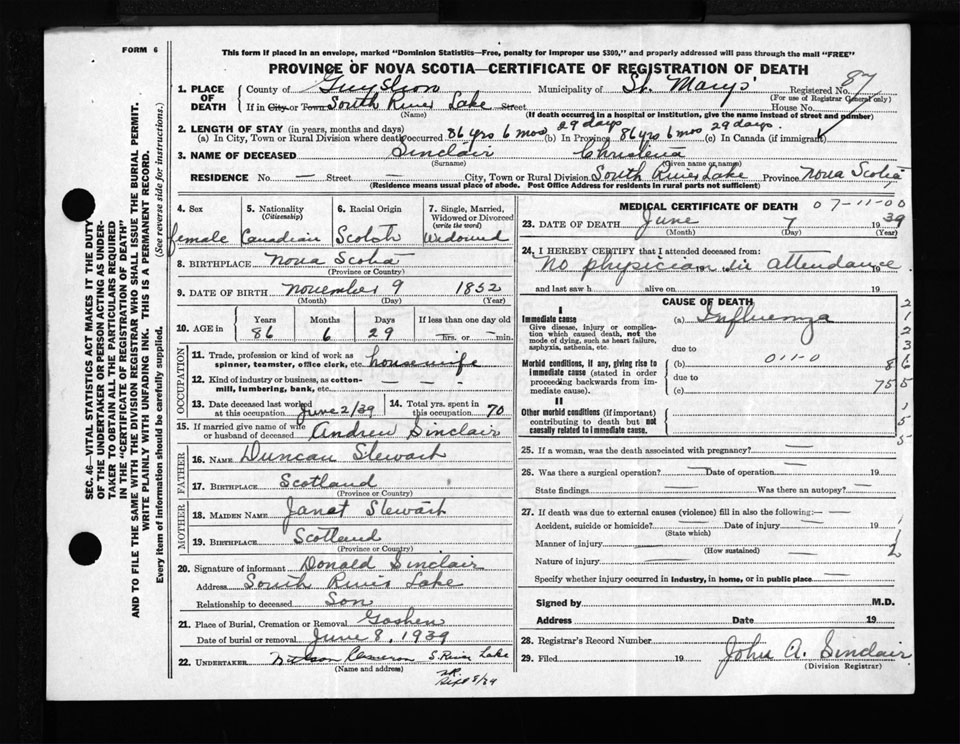 FORM 6
This form if placed in an envelope, marked "Dominion Statistics—Free, penalty for improper use $300," and properly addressed will pass through the mail "FREE"
PROVINCE OF NOVA SCOTIA—CERTIFICATE OF REGISTRATION OF DEATH
SEC. 46—VITAL STATISTICS ACT MAKES IT THE DUTY
OF THE UNDERTAKER OR PERSON ACTING AS UNDER-
TAKER TO OBTAIN ALL THE PARTICULARS REQUIRED
IN THE "CERTIFICATE OF REGISTRATION OF DEATH"
AND TO FILE THE SAME WITH THE DIVISION REGISTRAR WHO SHALL ISSUE THE BURIAL PERMIT.
WRITE PLAINLY WITH UNFADING INK. THIS IS A PERMANENT RECORD.
Every item of information should be carefully supplied. (See reverse side for instructions.)
1. PLACE OF DEATH
County of Guysboro Municipality of St. Marys' Registered No. 87
(For use of Registrar General only)
If in City or Town South River Lake Street House No.
(Name) (If death occurred in a hospital or institution, give the name instead of street and number)
2. LENGTH OF STAY (in years, months and days)
(a) In City, Town or Rural Division where death occurred 86 yrs 6 mos 29 days (b) In Province 86 yrs 6 mos 29 days (c) In Canada (if immigrant)
3. NAME OF DECEASED Sinclair Christena
(Surname) (Given name or names)
RESIDENCE No. — Street — City, Town or Rural Division South River Lake Province Nova Scotia
(Residence means usual place of abode. Post Office Address for residents in rural parts not sufficient)
4. Sex 5. Nationality (Citizenship) 6. Racial Origin 7. Single, Married, Widowed or Divorced (write the word)
female Canadian Scotch Widowed
8. BIRTHPLACE Nova Scotia
(Province or Country)
9. DATE OF BIRTH November 9 1852
(Month) (Day) (Year)
10. AGE in Years Months Days If less than one day old
86 6 29 — hrs. or — min.
OCCUPATION
11. Trade, profession or kind of work as spinner, teamster, office clerk, etc. housewife
12. Kind of industry or business, as cotton-mill, lumbering, bank, etc. — — —
13. Date deceased last worked at this occupation June 2/39 14. Total yrs. spent in this occupation 70
15. If married give name of wife or husband of deceased Andrew Sinclair
FATHER
16. NAME Duncan Stewart
17. BIRTHPLACE Scotland
(Province or Country)
MOTHER
18. MAIDEN NAME Janat Stewart
19. BIRTHPLACE Scotland
(Province or Country)
20. Signature of informant Donald Sinclair
Address South River Lake
Relationship to deceased Son
21. Place of Burial, Cremation or Removal Goshen
Date of burial or removal June 8, 1939
22. UNDERTAKER Cameron S. River Lake
(Name and address)
Sept 5/39
MEDICAL CERTIFICATE OF DEATH 07-11-00
23. DATE OF DEATH June 7 1939
(Month) (Day) (Year)
24. I HEREBY CERTIFY that I attended deceased from:
No physician in attendance 19
and last saw h alive on 19
CAUSE OF DEATH
I
Immediate cause (a) Influenza
Give disease, injury or complication which caused death, not the mode of dying, such as heart failure, asphyxia, asthenia, etc.
due to
Morbid conditions, if any, giving rise to immediate cause (stated in order proceeding backwards from immediate cause). (b) 011-0
due to
(c)
II
Other morbid conditions (if important) contributing to death but not causally related to immediate cause.
2
1
2
3
8 6
75 5
1
5
5
25. If a woman, was the death associated with pregnancy? —
26. Was there a surgical operation? — Date of operation — 19
State findings — Was there an autopsy? —
27. If death was due to external causes (violence) fill in also the following:—
Accident, suicide or homicide? — Date of injury — 19
(State which)
Manner of injury —
(How sustained)
Nature of injury —
Specify whether injury occurred in industry, in home, or in public place —
1
1
2
Signed by M.D.
Address Date 19
28. Registrar's Record Number
29. Filed 19 John A. Sinclair
(Division Registrar)